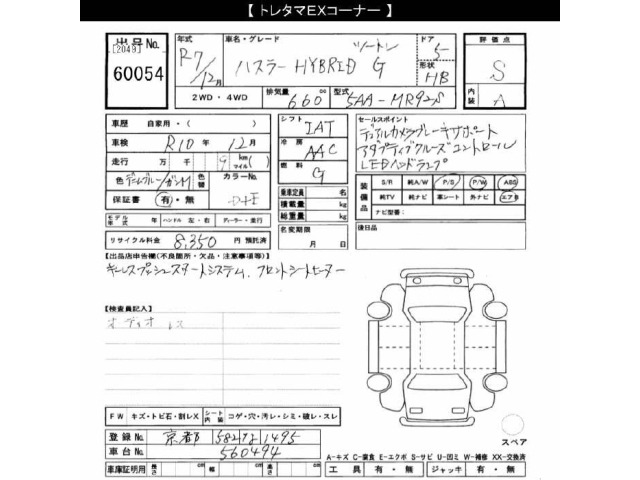 【 トレタマEXコーナー 】
出品No. 年式 車名・グレード ツートン ドア 評価点
[2049] R7/12月 ハスラー HYBRID G 5 S
60054 形状 HB
2WD・4WD 排気量 660 cc 型式 5AA-MR92S 内装 A
車歴 自家用・( ) シフト IAT セールスポイント
車検 R10年 12月 冷房 AAC デュアルカメラブレーキサポート
走行 万 千 9 km(マイル) アダプティブクルーズコントロール
燃料 G LEDヘッドランプ
色 デニムブルー/ガンM 色替 カラーNo.
保証書 有・無 乗車定員 名
積載量 kg
総重量 kg
装備品 S/R 純A/W P/S P/W ABS
純TV 純ナビ 革シート 外ナビ エアB
ナビ型番:
モデル年式 年 ハンドル 左・右 ディーラー・並行 名変期限 月 日 後日品
リサイクル料金 8,350円 預託済
【出品店申告欄(不良箇所・欠品・注意事項等)】
キーレスプッシュスタートシステム、フロントシートヒーター
【検査員記入】
オーディオレス
FW キズ・トビ石・割レX シート内装 コゲ・穴・汚レ・シミ・破レ・スレ
登録No. 京都 582 1495
車台No. 560494 スペア
A-キズ C-腐食 E-エクボ S-サビ U-凹ミ W-補修 XX-交換済
車庫証明用 長さ cm 幅 cm 高さ cm 工具 有・無 ジャッキ 有・無